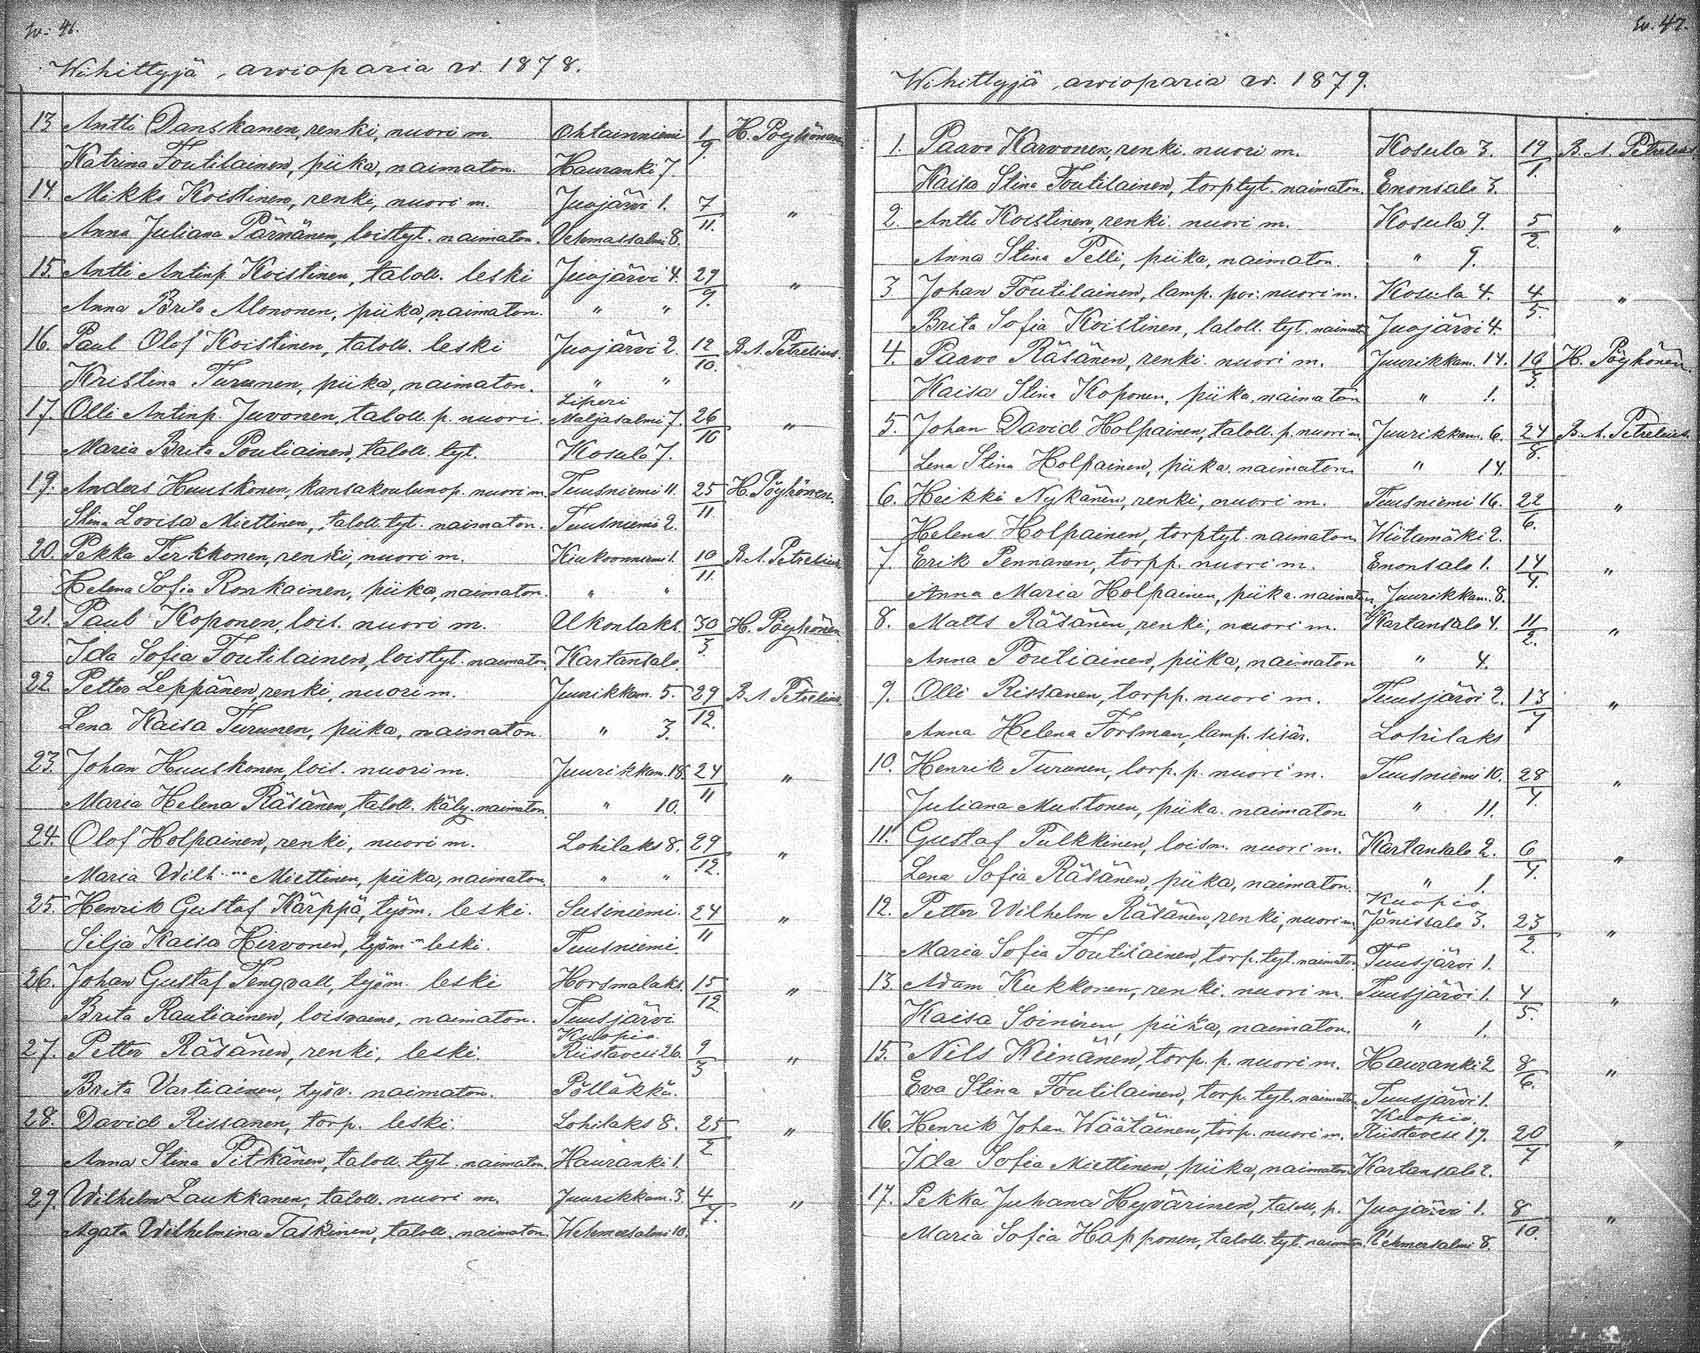 Siv. 46.
Wihittyjä, awioparia w. 1878.
13 Antti Danskanen, renki, nuori m. Ohtainniemi 1/9. H. Pöyhönen
Katrina Toutilainen, piika, naimaton. Hauranki 7.
14. Mikko Koistinen, renki, nuori m. Juojärvi 1. 7/11. "
Anna Juliana Pärnänen, loistyt. naimaton. Vehmassalmi 8.
15. Antti Antinp. Koistinen, taloll. leski Juojärvi 4. 29/9. "
Anna Brita Mononen, piika, naimaton. " "
16. Paul Olof Koistinen, taloll. leski Juojärvi 2. 12/10. B. A. Petrelius.
Kristina Turunen, piika, naimaton. " "
17. Olli Antinp. Juvonen, taloll. p. nuori. Liperi Maljasalmi 7. 26/10 "
Maria Brita Poutiainen, taloll. tyt. Kosula 7.
19. Anders Huuskonen, kansakoulunop. nuori m. Tuusniemi 11. 25/11 H. Pöyhönen.
Stina Lovisa Miettinen, taloll. tyt. naimaton. Tuusniemi 2.
20. Pekka Terkkonen, renki, nuori m. Kiukoonniemi 1. 10/11. B. A. Petrelius
Helena Sofia Ronkainen, piika, naimaton. " "
21. Paul Koponen, lois. nuori m. Alkonlaks. 30/3. H. Pöyhönen
Ida Sofia Toutilainen, loistyt. naimaton Kartansalo
22. Petter Leppänen, renki, nuori m. Juurikkam. 5. 29/12. B. A. Petrelius.
Lena Kaisa Turunen, piika, naimaton. " 3.
23. Johan Huuskonen, lois. nuori m. Juurikkam. 18. 24/11 "
Maria Helena Räsänen, taloll. käly. naimaton " 10.
24. Olof Holpainen, renki, nuori m. Lohilaks 8. 29/12. "
Maria Wilh:na Miettinen, piika, naimaton. " "
25. Henrik Gustaf Kärppä, työm. leski. Susiniemi. 24/11 "
Silja Kaisa Hirvonen, työm:n leski. Tuusniemi.
26. Johan Gustaf Tengvall, työm. leski Horsmalaks. 15/12 "
Brita Rautiainen, loisvaimo, naimaton. Tuusjärvi
27. Petter Räsänen, renki, leski. Kuopio Riistavesi 26. 9/3 "
Brita Vartiainen, työv. naimaton. Pölläkkä.
28. David Rissanen, torp. leski. Lohilaks 8. 25/2 "
Anna Stina Pitkänen, taloll. tyt. naimaton. Hauranki 1.
29. Wilhelm Laukkanen, taloll. nuori m. Juurikkam. 3. 4/7. "
Agata Wilhelmina Taskinen, taloll. naimaton. Wehmersalmi 10.
Siv. 47.
Wihittyjä, awioparia w. 1879.
1. Paavo Karvonen, renki. nuori m. Kosula 3. 19/1. B. A. Petrelius
Kaisa Stina Toutilainen, torptyt. naimaton. Enonsalo 3.
2. Antti Koistinen, renki. nuori m. Kosula 9. 5/2. "
Anna Stina Pelli, piika, naimaton. " 9.
3 Johan Toutilainen, lamp. poi. nuori m. Kosula 4. 4/5. "
Brita Sofia Koistinen, taloll. tyt. naimato Juojärvi 4.
4. Paavo Räsänen, renki. nuori m. Juurikkam. 14. 16/3. H. Pöyhönen.
Kaisa Stina Koponen, piika, naimaton " 1.
5. Johan David Holpainen, taloll. p. nuori m. Juurikkam. 6. 24/8. B. A. Petrelius.
Lena Stina Holpainen, piika, naimaton. " 14.
6. Heikki Nykänen, renki, nuori m. Tuusniemi 16. 22/6. "
Helena Holpainen, torptyt. naimaton Wiitamäki 2.
7. Erik Pennanen, torpp. nuori m. Enonsalo 1. 14/4. "
Anna Maria Holpainen, piika. naimaton Juurikkam. 8.
8. Matts Räsänen, renki, nuori m. Kartansalo 4. 11/2. "
Anna Poutiainen, piika, naimaton " 4.
9. Olli Rissanen, torpp. nuori m. Tuusjärvi 2. 13/7 "
Anna Helena Forsman, lamp. sisär. Lohilaks
10. Henrik Turunen, torp. p. nuori m. Tuusniemi 10. 28/4. "
Juliana Mustonen, piika. naimaton " 11.
11. Gustaf Pulkkinen, loism. nuori m. Kartansalo 2. 6/4. "
Lena Sofia Räsänen, piika, naimaton. " 1.
12. Petter Wilhelm Räsänen, renki, nuori m. Kuopio Jänissalo 3. 23/2. "
Maria Sofia Toutilainen, torp. tyt. naimaton. Tuusjärvi 1.
13. Adam Kukkonen, renki. nuori m. Tuusjärvi 1. 4/5. "
Kaisa Soininen, piika, naimaton. " 1.
15. Nils Keinänen, torp. p. nuori m. Hauranki 2 8/6. "
Eva Stina Toutilainen, torp. tyt. naimaton. Tuusjärvi 1.
16. Henrik Johan Wäätäinen, torp. nuori m. Kuopio Riistavesi 19. 20/7 "
Ida Sofia Miettinen, piika, naimaton. Kartansalo 2.
17. Pekka Juhana Hyvärinen, taloll. p. Juojärvi 1. 8/10. "
Maria Sofia Happonen, taloll. tyt. naimaton. Vehmersalmi 8.